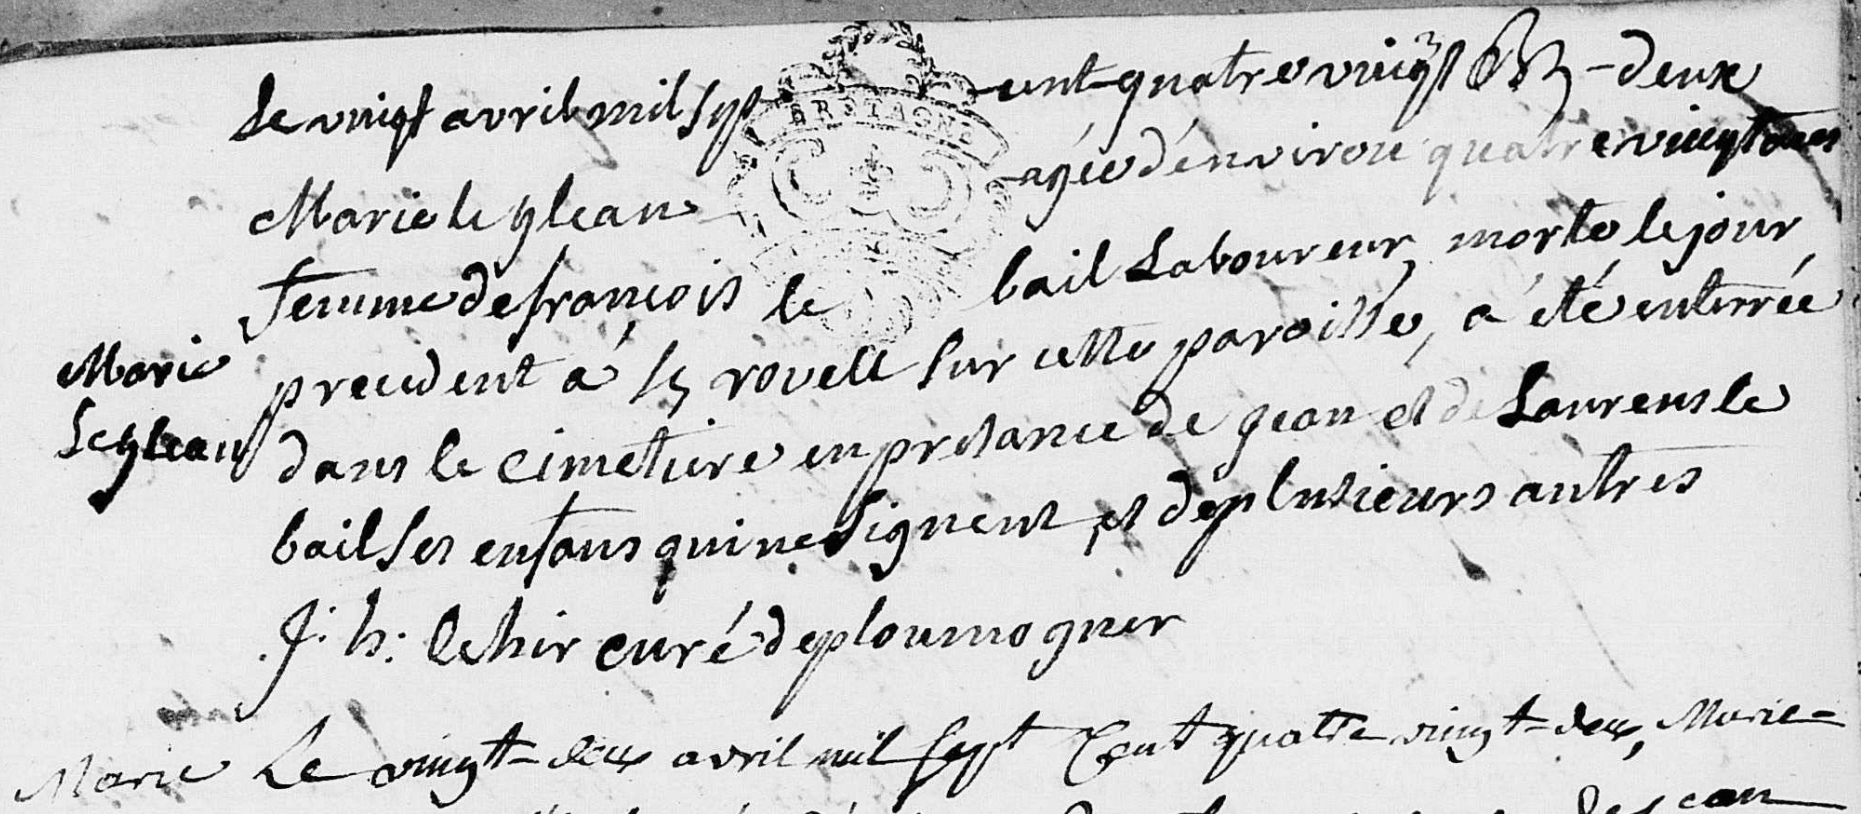 Le vingt avril mil sept cent quatre vingt - deux
BRETAGNE
Marie le glean agée d'environ quatre vingt ans
femme de françois le bail Laboureur, morte le jour
precedent á rouell sur cette paroisse, a été enterrée
Marie
Le glean
dans le cimetiere en presance de jean et de Laurens le
bail ses enfans qui ne signent, et de plusieurs autres
J: h: le hir curé de ploumoguer
Marie Le vingt-deux avril mil sept Cent quatre vingt-deux, Marie-